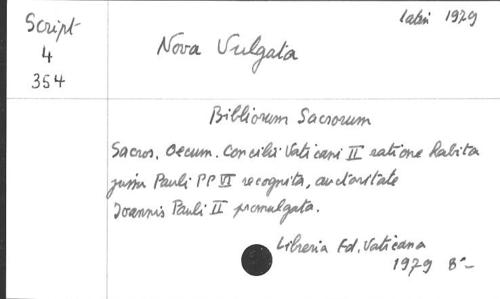 Script
4
354
latein 1979
Nova Vulgata
Bibliorum Sacrorum
Sacros. Oecum. Concilii Vaticani II ratione habita
jussu Pauli PP VI recognita, auctoritate
Joannis Pauli II promulgata.
Libreria Ed. Vaticana
1979 8°-